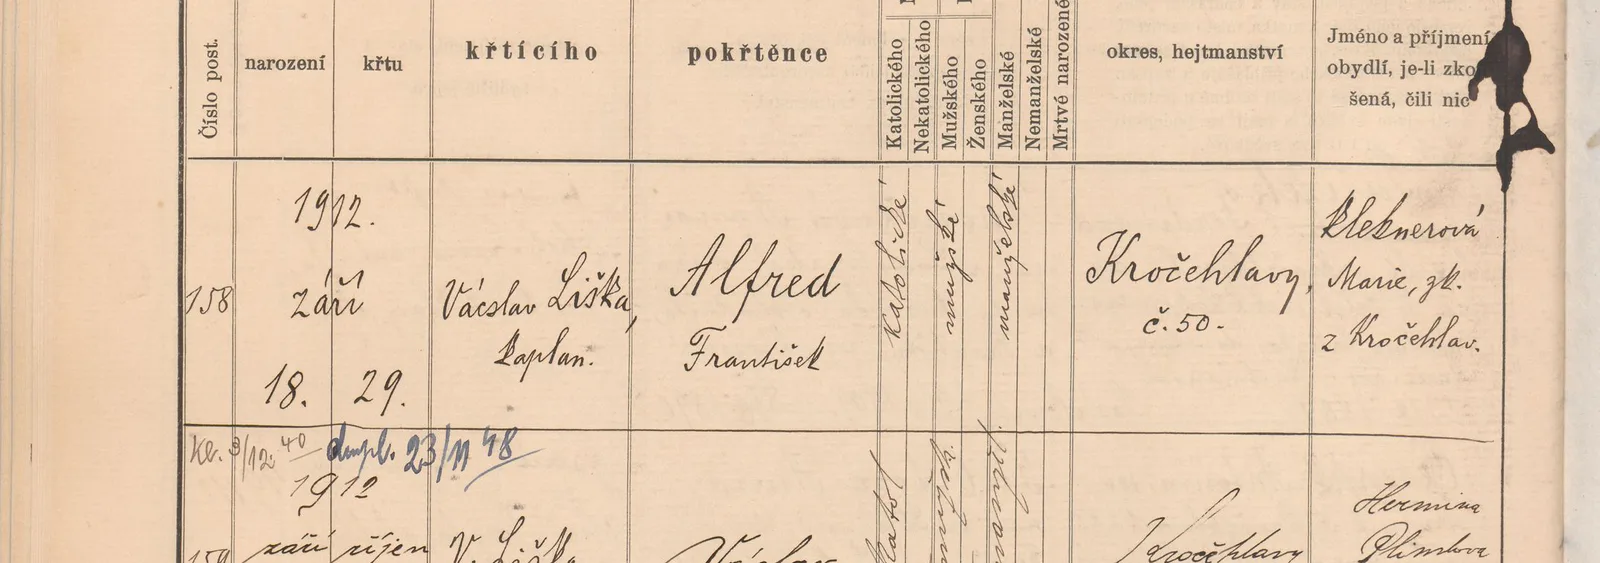 Číslo post.
narození
křtu
křtícího
pokřtěnce
Katolického
Nekatolického
Mužského
Ženského
Manželské
Nemanželské
Mrtvé narozené
okres, hejtmanství
Jméno a příjmení
obydlí, je-li zko
šená, čili nic
1912.
158
září
18.
29.
Václav Liška,
kaplan.
Alfred
František
katolické
mužské
manželské
Kročehlavy,
č. 50.
Kleknerová
Marie, zk.
z Kročehlav.
3/12. 40
dupl. 23/11 48
1912
159
září
říjen
V. Liška
Václav
katol
manžel.
Kročehlavy
Hermina